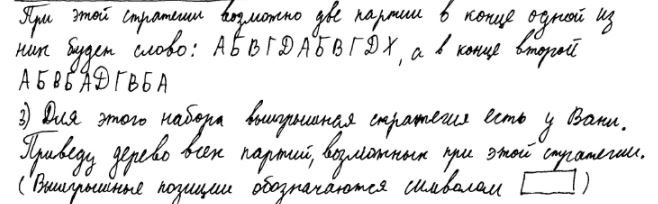 При этой стратегии возможно две партии в конце одной из
них будет слово: АБВГДАБВГДХ, а в конце второй
АБВБАДГВБА
3) Для этого набора выигрышная стратегия есть у Вани.
Приведу дерево всех партий, возможных при этой стратегии.
(Выигрышные позиции обозначаются символом )